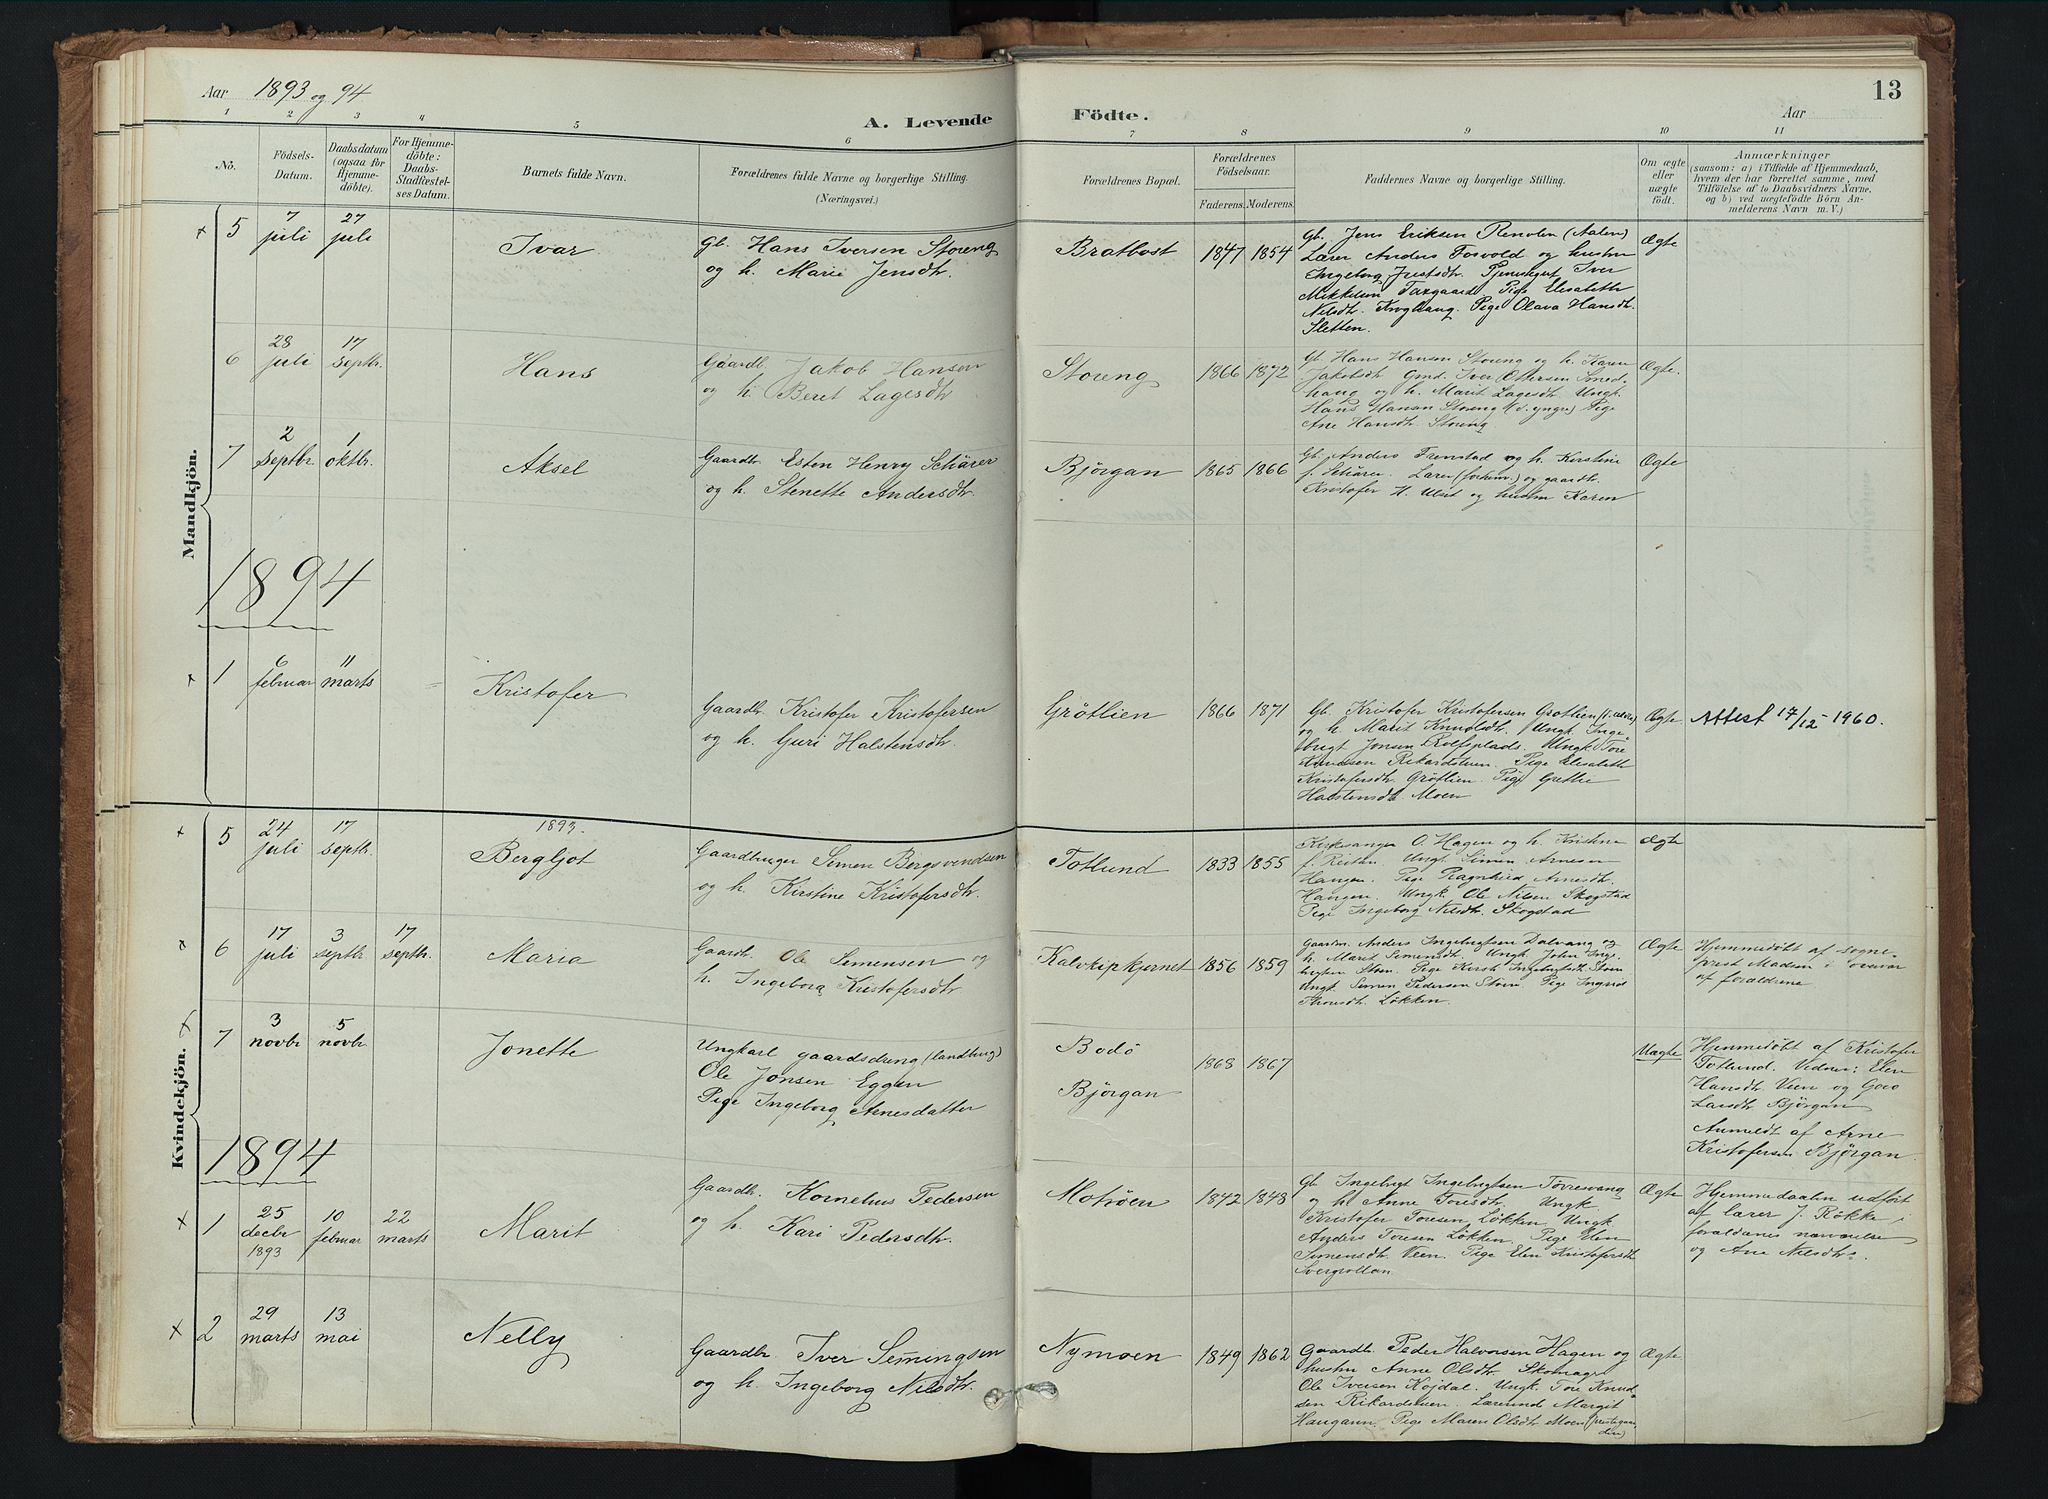 Aar 1893 og 94
A. Levende
Födte.
Aar
13
1 2 3 4 5 6 7 8 9 10 11
No.
Födsels-
Datum.
Daabsdatum
(ogsaa for
Hjemme-
döbte).
For Hjemme-
döbte:
Daabs-
Stadfæstel-
ses Datum.
Barnets fulde Navn.
Forældrenes fulde Navne og borgerlige Stilling.
(Næringsvei.)
Forældrenes Bopæl.
Forældrenes
Födselsaar.
Faderens. Moderens.
Faddernes Navne og borgerlige Stilling.
Om ægte
eller
uægte
födt.
Anmærkninger
(saasom: a) i Tilfælde af Hjemmedaab,
hvem der har forrettet samme, med
Tilföielse af to Daabsvidners Navne,
og b) ved uægtefödte Börn An-
melderens Navn m. V.)
Mandkjön.
× 5
7
juli
27
juli
Ivar
Gb. Hans Iversen Storeng
og h. Marie Jensdtr.
Bratbost
1847 1854
Gb. Jens Eriksen Renolen (Aalen)
Lærer Anders Fosvold og hustru
Ingeborg Tjenestgut Iver
Mikkelsen Pige Elisabeth
Nilsdtr. Pige Olava Hansdtr.
Sletten.
Ægte
6
28
juli
17
septbr.
Hans
Gaardb. Jakob Hansen
og h. Beret Lagesdtr
Storeng
1866 1872
Gb. Hans Hansen Storeng og h. Karen
Jakobsdtr. Gmd. Iver Ottersen Smed-
haug og h. Marit Lagesdtr. Ungk.
Hans Hansen Storeng (d. yngre) Pige
Ane Hansdtr. Storeng
Ægte.
7
2
septbr.
1
oktbr.
Aksel
Gaardbr. Esten Henry Schärer
og h. Stenette Andersdtr.
Björgan
1865 1866
Gb. Anders Trønstad og h. Kirstine
f. Schärer. Lærer og gaardbr.
Kristofer H. og hustru Karen
Ægte
1894
× 1
6
februar
11
marts
Kristofer
Gaardbr. Kristofer Kristofersen
og h. Guri Halstensdtr.
Grøtlien
1866 1871
Gb. Kristofer Kristofersen Grøtlien
og h. Marit Knudsdtr. Ungk. Inge-
brigt Jonsen Rolfsplads. Ungk. Tore
Rikardstuen. Pige Elisabeth
Kristofersdtr. Grøtlien. Pige Grethe
Halstensdtr. Moen
Ægte
Attest 17/12-1960.
Kvindekjön.
× 5
24
juli
17
septbr.
1893.
Bergljot
Gaardbruger Simen Bergsvendsen
og h. Kirstine Kristofersdtr.
Totlund
1833 1855
Kirkesanger O. Hagen og h. Kristine
f. Reitan. Ungk. Simen Arnesen
Haugen. Pige Ragnhild Arnesdtr.
Haugen. Ungk. Ole Nilsen Skogstad
Pige Ingeborg Nilsdtr. Skogstad
Ægte
× 6
17
juli
3
septbr.
17
septbr.
Maria
Gaardb. Ole Simensen og
h. Ingeborg Kristofersdtr.
Kalvkipkjernet
1856 1859
Gaardm. Anders Ingebrigtsen Dalvang og
h. Marit Simensdtr. Ungk. John Inge-
brigtsen Pige Kirsti Ingebrigtsdtr.
Ungk. Simen Pedersen Pige Ingrid
Løkken.
Ægte
Hjemmedøbt af sogne-
prest Madsen i overvær
af forældrene
× 7
3
novbr
5
novbr.
Jonette
Ungkarl gaardsdreng (landbrug)
Ole Jonsen Eggen
Pige Ingeborg Arnesdatter
Bodø
Björgan
1868 1867
Uægte
Hjemmedøbt af Kristofer
Totlund. Vidner: Elen
Hansdtr. Veen og Goro
Larsdtr Björgan
Anmeldt af Arne
Kristofersen Björgan.
1894
× 1
25
decbr
1893
10
februar
22
marts
Marit
Gaardb. Kornelius Pedersen
og h. Kari Pedersdtr.
Motrøen
1842 1848
Gb. Ingebrigt Ingebrigtsen Tørresvang
og h. Anne Toresdtr. Ungk.
Kristofer Toresen Løkken. Ungk.
Anders Toresen Løkken. Pige Elen
Simensdtr. Veen. Pige Elen Kristofersdtr.
Ægte
Hjemmedaaben udført
af lærer J. Røkke i
forældrenes nærværelse
og Ane Nilsdtr.
× 2
29
marts
13
mai
Nelly
Gaardbr. Iver Semingsen
og h. Ingeborg Nilsdtr.
Nymoen
1849 1862
Gaardb. Peder Halvorsen Hagen og
hustru Anne Olsdtr. Skomager
Ole Iversen Kojdal. Ungk. Tore Knud-
sen Rikardstuen. Lærerinde Margit
Haugann. Pige Maren Olsdtr. Moen (prestegaar-
den)
Ægte